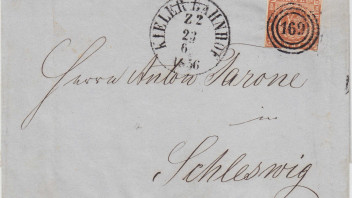 KIELER BAHNHOF
Z2
23
6
1856
169
Herrn Anton Jarone
in
Schleswig